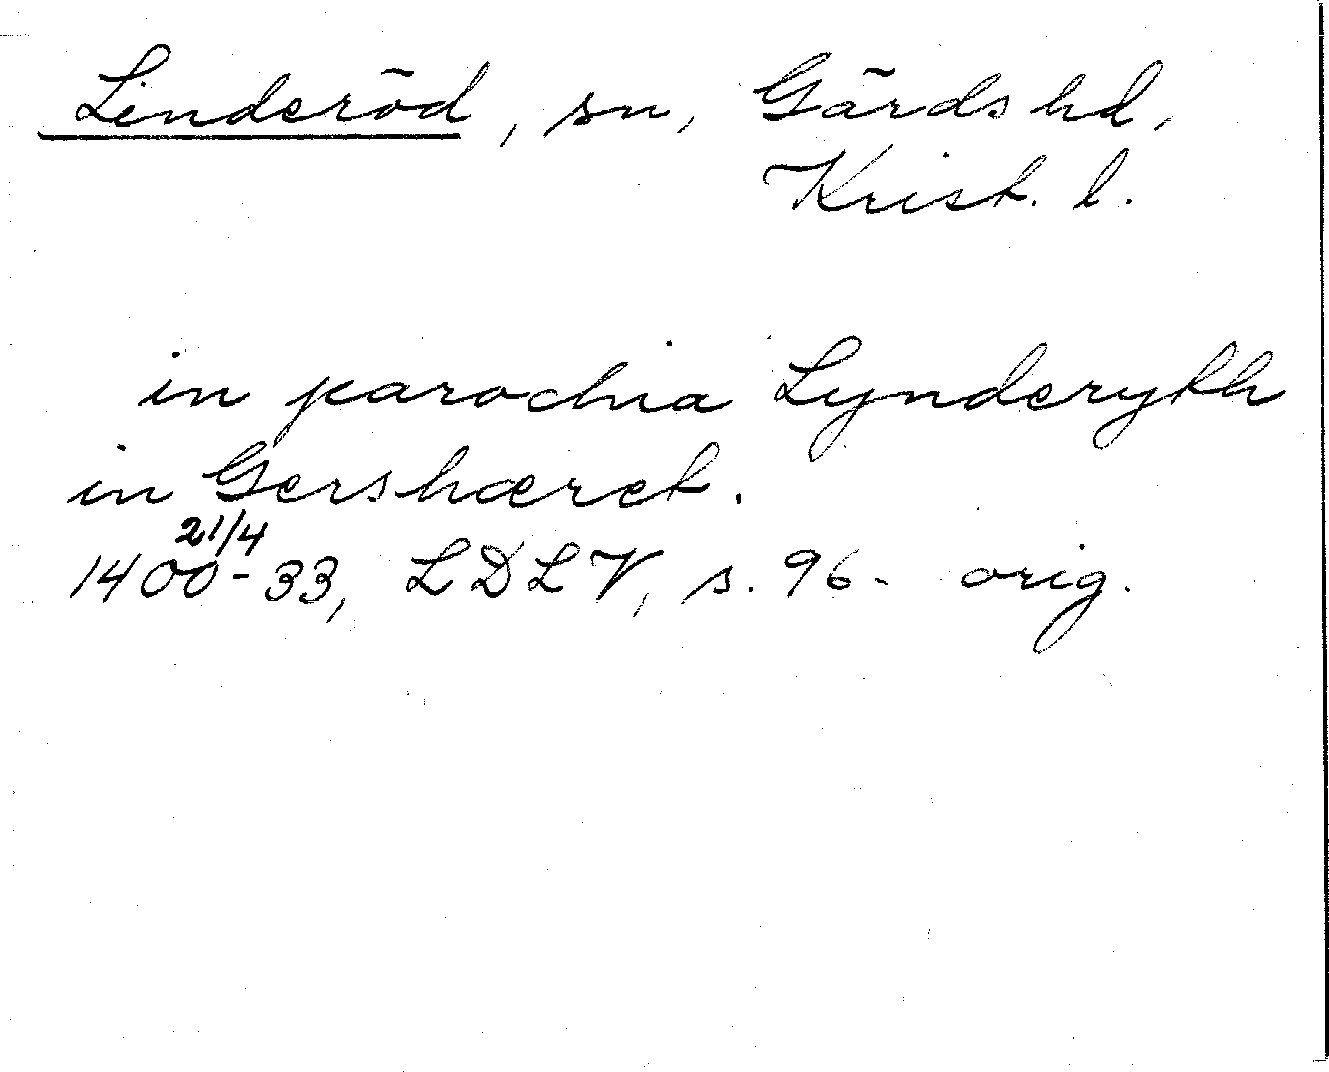 Linderöd, sn, Gärds hd,
Krist. l.
in parochia Lynderyth
in Gershæret.
21/4
1400-33, LDLV, s. 96. orig.